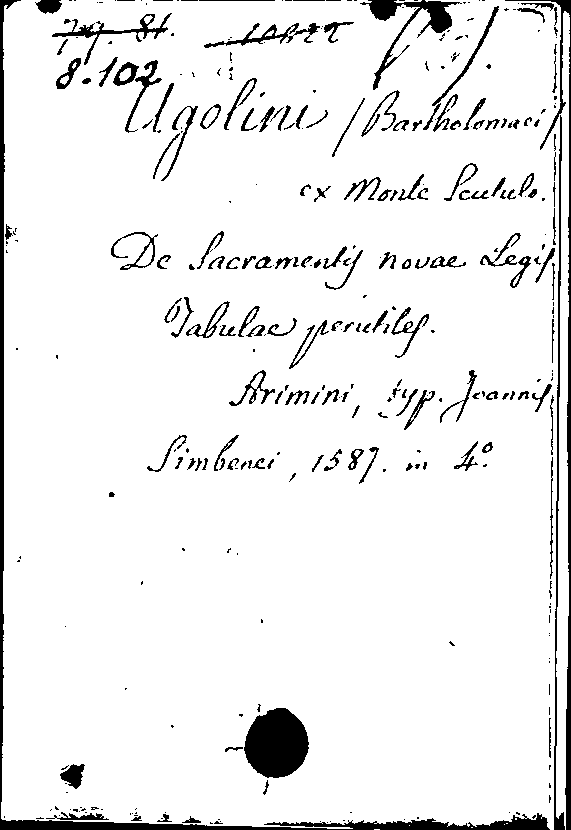 79. 81. 10822
8.102
Ugolini /Bartholomaei/
ex Monte Scutulo.
De Sacramentis novae Legis
Tabulae perutiles.
Arimini, typ. Joannis
Simbenei, 1587. in 4º